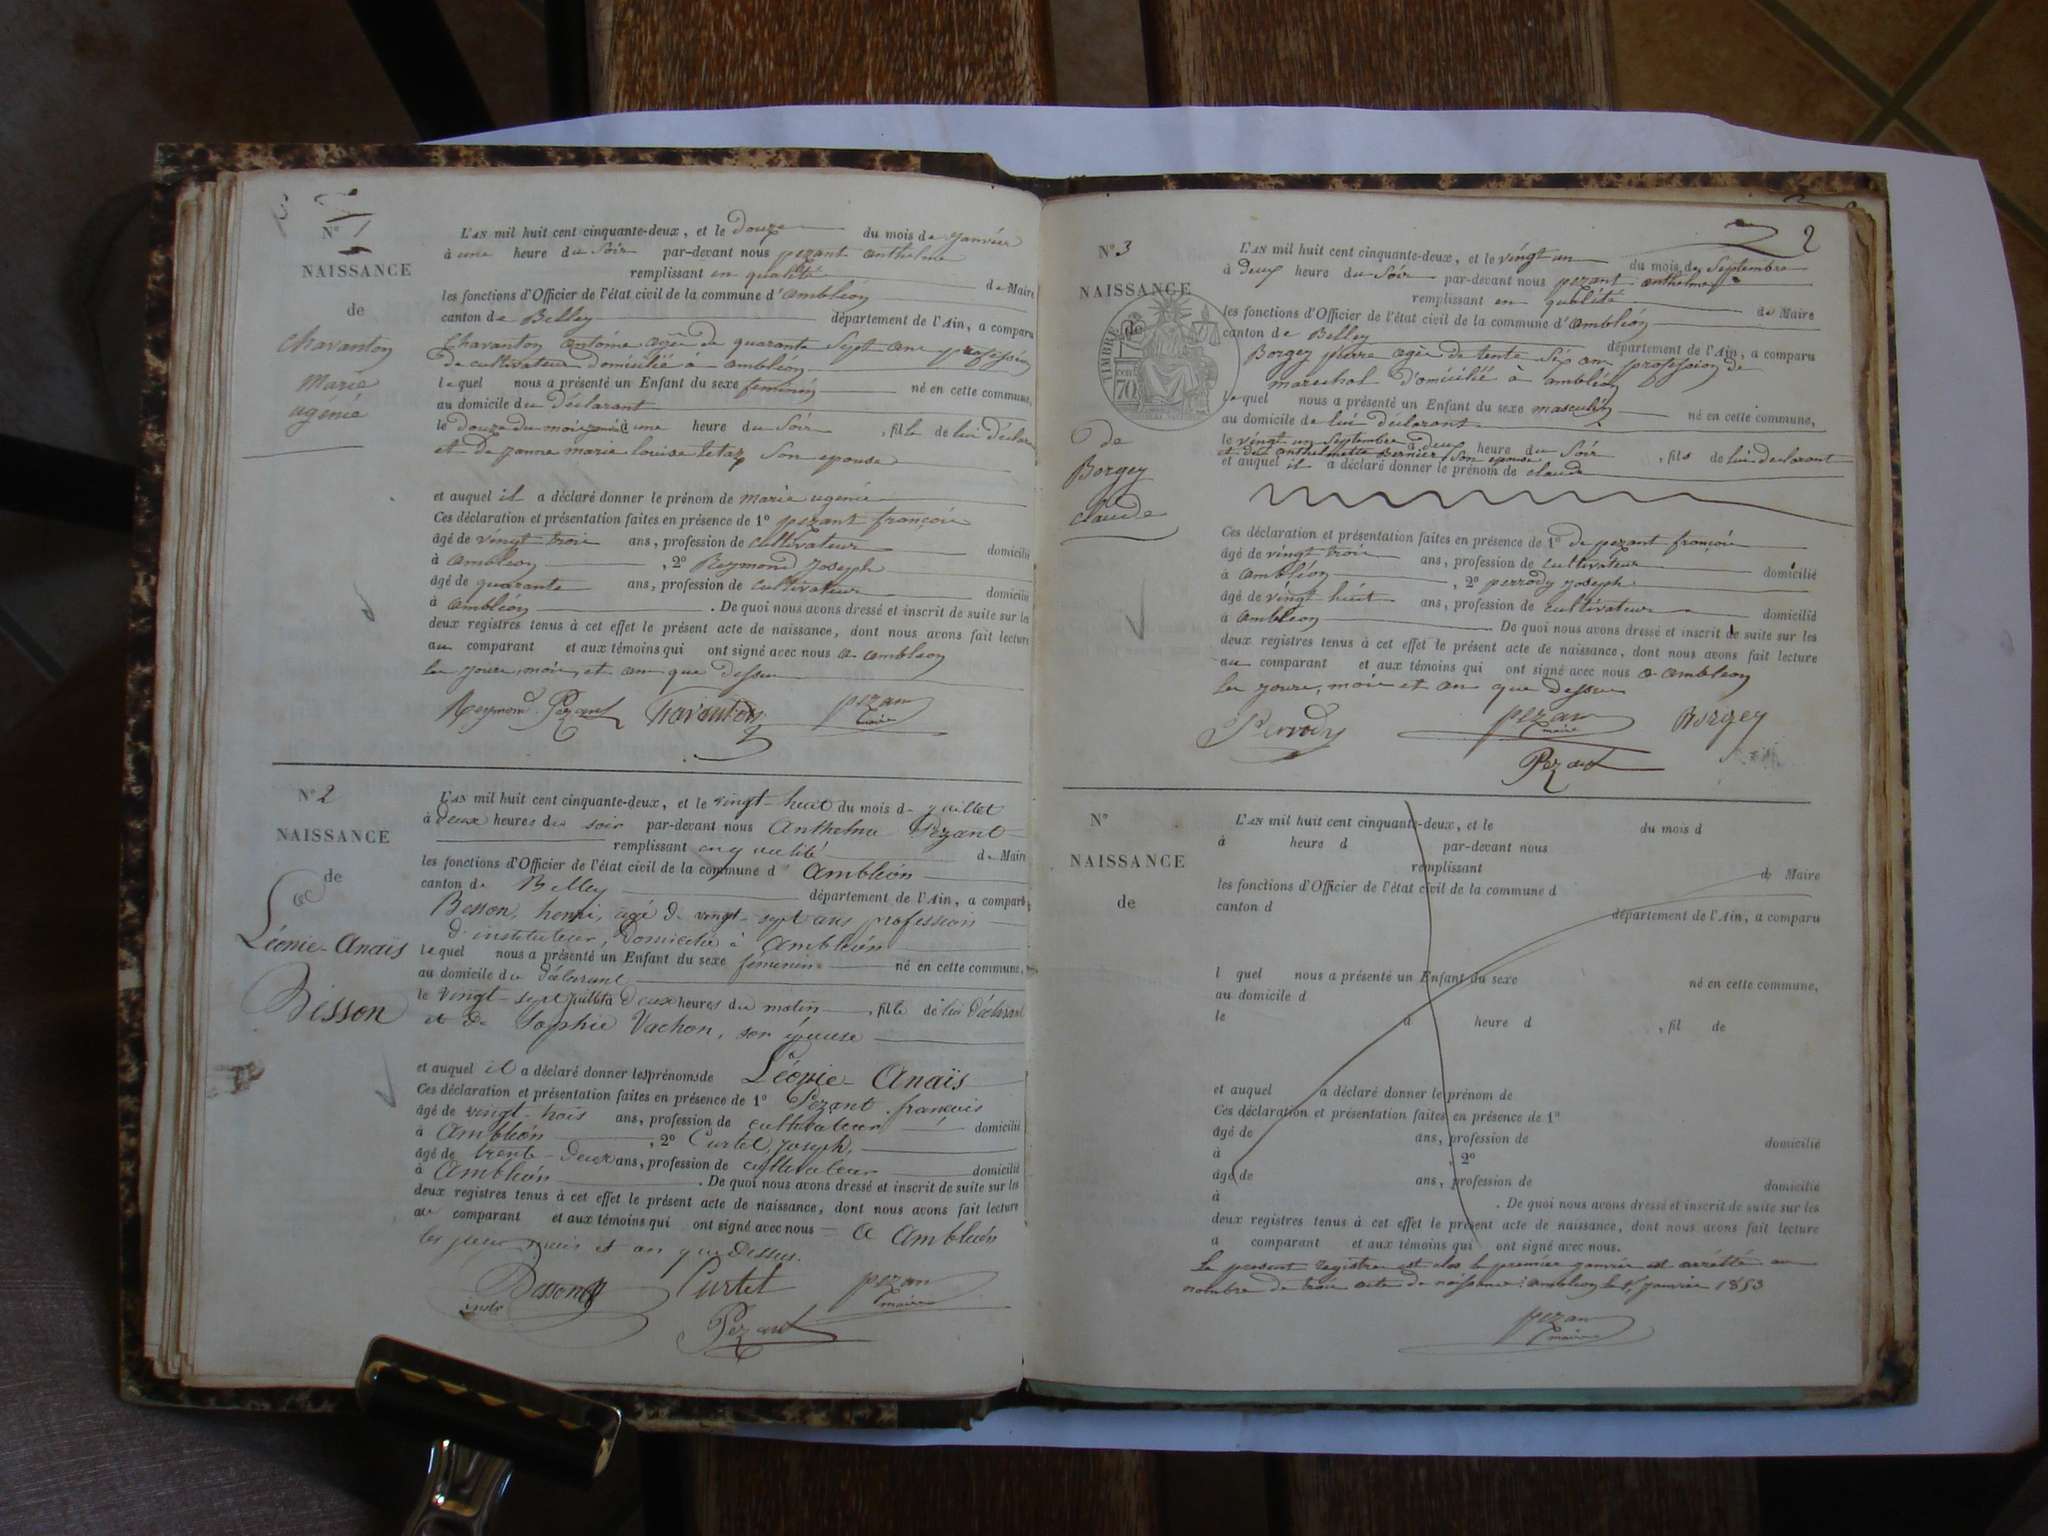 N° 1
NAISSANCE
de
Chavanton
Marie
ugénie
L'AN mil huit cent cinquante-deux, et le Douze du mois de Janvier
à une heure du Soir par-devant nous pezant anthelme
remplissant en qualité de Maire
les fonctions d'Officier de l'état civil de la commune d'ambléon
canton de Belley département de l'Ain, a comparu
Chavanton antoine agée de quarante Sept ans profession
de cultivateur domicilié à ambléon
lequel nous a présenté un Enfant du sexe feminin né en cette commune,
au domicile du déclarant
le Douze du mois janvié à une heure du Soir, fille de lui déclara
et de Janne marie louise tetaz Son epouse
et auquel il a déclaré donner le prénom de marie ugenie
Ces déclaration et présentation faites en présence de 1° pezant françois
âgé de vingt trois ans, profession de cultivateur domicilié
à ambleon, 2° Reymond Joseph
âgé de quarante ans, profession de cultivateur domicilié
à ambléon. De quoi nous avons dressé et inscrit de suite sur les
deux registres tenus à cet effet le présent acte de naissance, dont nous avons fait lecture
au comparant et aux témoins qui ont signé avec nous a ambleon
les jours, mois, et an que dessus
Reymond Pezant Chavanton pezan
maire
N° 2
NAISSANCE
de
Léonie-Anaïs
Besson
L'AN mil huit cent cinquante-deux, et le vingt-huit du mois de juillet
à deux heures du soir par-devant nous Anthelme Pezant
remplissant en qualité de Maire
les fonctions d'Officier de l'état civil de la commune d'Ambléon
canton de Belley département de l'Ain, a comparu
Besson, henri, agé de vingt-sept ans profession
d'instituteur, domicilié à Ambléon
lequel nous a présenté un Enfant du sexe féminin né en cette commune,
au domicile du déclarant
le vingt-sept juillet à deux heures du matin, fille de lui déclarant
et de Sophie Vachon, son épouse
et auquel il a déclaré donner les prénoms de Léonie-Anaïs
Ces déclaration et présentation faites en présence de 1° Pezant françois
âgé de vingt-trois ans, profession de cultivateur domicilié
à Ambléon, 2° Curtet, Joseph,
âgé de trente-deux ans, profession de cultivateur domicilié
à Ambléon. De quoi nous avons dressé et inscrit de suite sur les
deux registres tenus à cet effet le présent acte de naissance, dont nous avons fait lecture
au comparant et aux témoins qui ont signé avec nous = a Ambléon
les jour, mois et an que dessus.
Besson Curtet pezan
instr maire
Pezant
2
N° 3
NAISSANCE
de
TIMBRE
70
de
Borgey
claude
L'AN mil huit cent cinquante-deux, et le vingt un du mois de Septembre
à deux heure du Soir par-devant nous pezant anthelme
remplissant en qualité de Maire
les fonctions d'Officier de l'état civil de la commune d'ambléon
canton de Belley département de l'Ain, a comparu
Borgey pierre agée de tente Six an profession de
marechal domicilié à ambléon
lequel nous a présenté un Enfant du sexe masculin né en cette commune,
au domicile de lui déclarant
le vingt un Septembre à deux heure du Soir, fils de lui declarant
et de anthelmette Bernier son epouse
et auquel il a déclaré donner le prénom de claude
Ces déclaration et présentation faites en présence de 1° de pezant françois
âgé de vingt trois ans, profession de cultivateur domicilié
à ambléon, 2° perrody Joseph
âgé de vingt huit ans, profession de cultivateur domicilié
à ambléon De quoi nous avons dressé et inscrit de suite sur les
deux registres tenus à cet effet le présent acte de naissance, dont nous avons fait lecture
au comparant et aux témoins qui ont signé avec nous a ambleon
les jours, mois et an que dessus
Perrody pezan Borgey
maire
Pezant
N°
NAISSANCE
de
L'AN mil huit cent cinquante-deux, et le du mois d
à heure d par-devant nous
remplissant d Maire
les fonctions d'Officier de l'état civil de la commune d
canton d département de l'Ain, a comparu
l quel nous a présenté un Enfant du sexe né en cette commune,
au domicile d
le à heure d , fil de
et auquel a déclaré donner le prénom de
Ces déclaration et présentation faites en présence de 1°
âgé de ans, profession de domicilié
à , 2°
âgé de ans, profession de domicilié
à . De quoi nous avons dressé et inscrit de suite sur les
deux registres tenus à cet effet le présent acte de naissance, dont nous avons fait lecture
a comparant et aux témoins qui ont signé avec nous.
Le present registre est clos le premier janvié est arrétté au
nombre de trois acte de naissance ambleon le 1, janvié 1853
pezan
maire